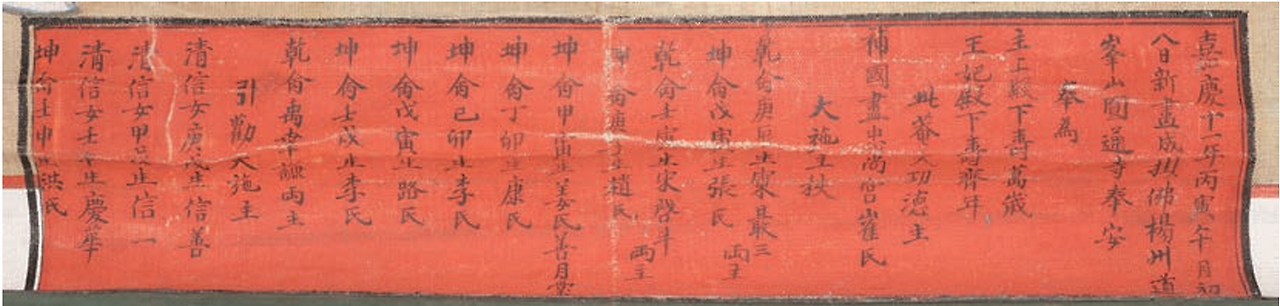 嘉慶十一年丙寅午月初
八日新畫成掛佛楊州道
峯山圓通寺奉安
奉為
主上殿下壽萬歲
王妃殿下壽齊年
此菴大功德主
補國盡忠尚宮崔氏
大施主秩
乾命庚辰生宋最三
坤命戊寅生張氏 両主
乾命壬寅生宋啓斗
坤命庚 生趙氏 両主
坤命甲寅生姜氏善月
坤命丁卯生康氏
坤命己卯生李氏
坤命戊寅生路氏
坤命壬戌生李氏
乾命禹 両主
引勸大施主
清信女庚戌生信善
清信女甲 生信一
清信女壬 生慶華
坤命壬申 洪氏